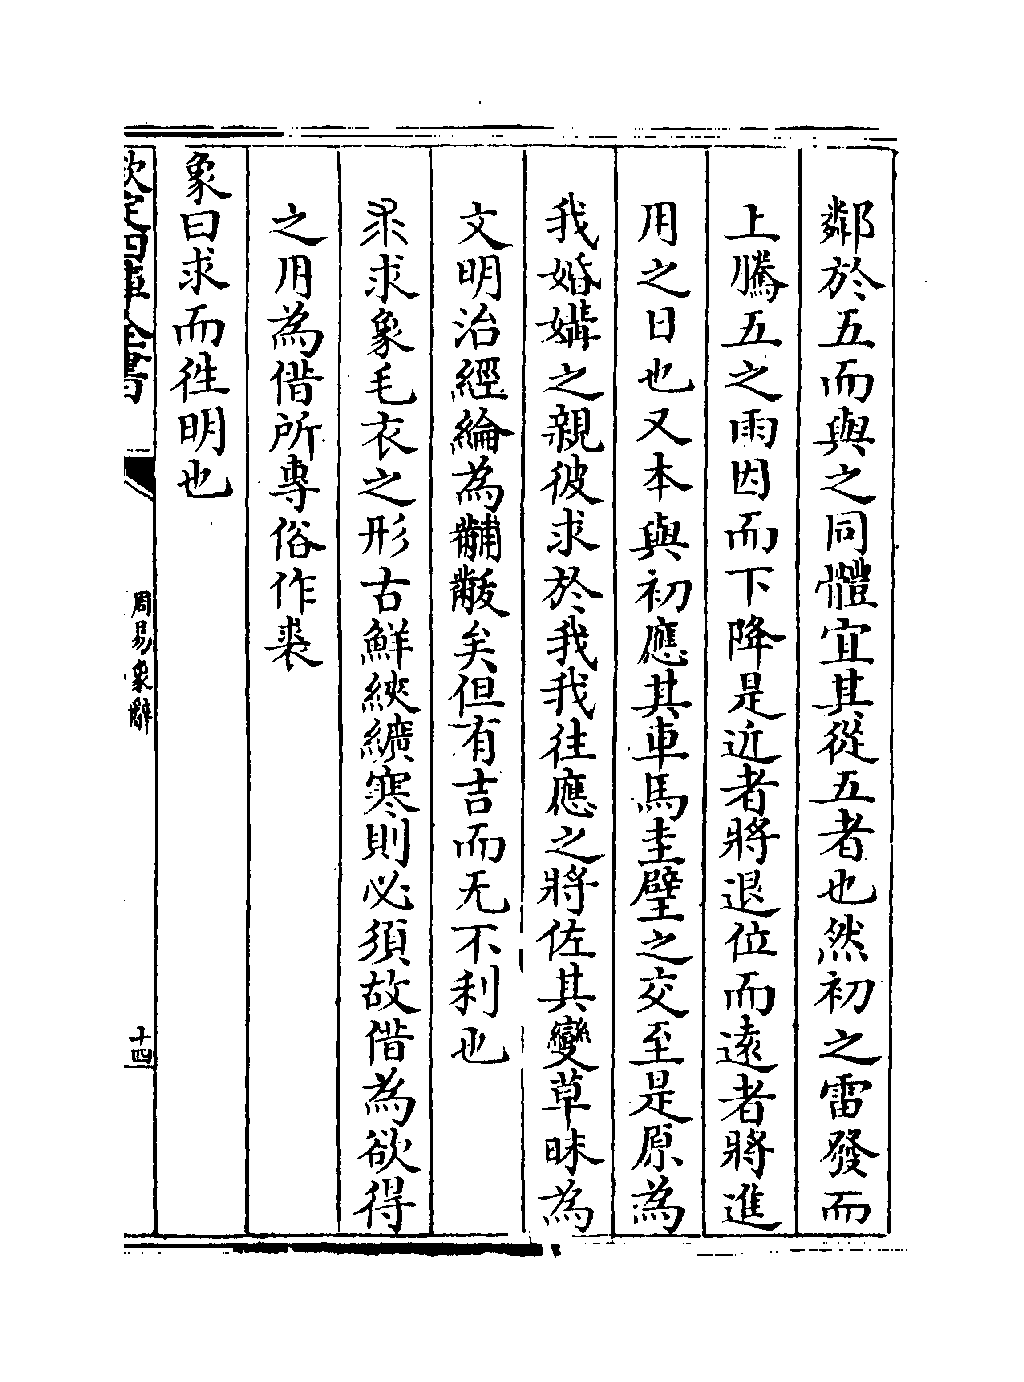 鄰於五而與之同體宜其從五者也然初之雷發而
上騰五之雨因而下降是近者將退位而遠者將進
用之日也又本與初應其車馬圭璧之交至是原為
我婚媾之親彼求於我我往應之將佐其變草昧為
文明治經綸為黼黻矣但有吉而无不利也
求象毛衣之形古鮮絲纊寒則必須故借為欲得
之用為借所專俗作裘
象曰求而徃明也
欽定四庫全書
周易象辭
十四